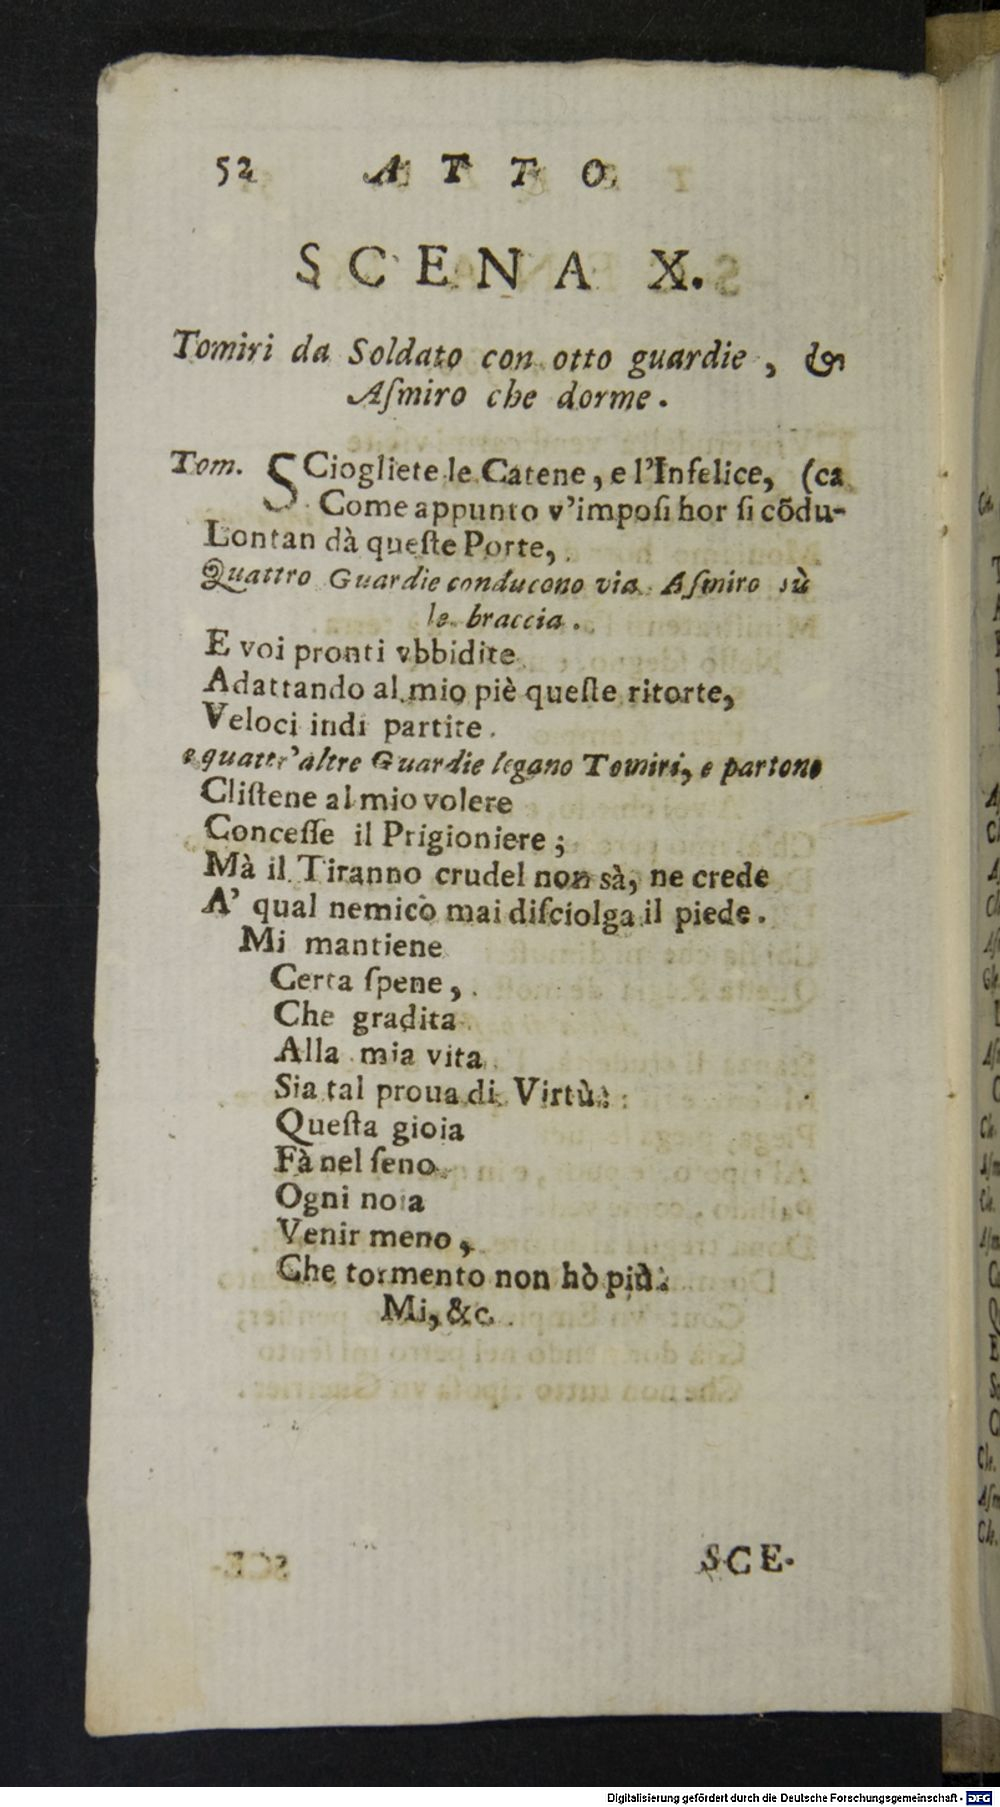 52 ATTO
SCENA X.
Tomiri da Soldato con otto guardie, &
Aſmiro che dorme.
Tom. SCiogliete le Catene, e l'Infelice, (ca
Come appunto v'impoſi hor ſi cõdu-
Lontan dà queſte Porte,
Quattro Guardie conducono via Aſmiro sù
le braccia.
E voi pronti vbbidite
Adattando al mio piè queſte ritorte,
Veloci indi partite.
e quattr'altre Guardie legano Tomiri, e partono
Cliſtene al mio volere
Conceſſe il Prigioniere;
Mà il Tiranno crudel non sà, ne crede
A' qual nemico mai diſciolga il piede.
Mi mantiene
Certa ſpene,
Che gradita
Alla mia vita
Sia tal proua di Virtù:
Queſta gioia
Fà nel ſeno
Ogni noia
Venir meno,
Che tormento non hò più.
Mi, &c.
SCE-
Digitalisierung gefördert durch die Deutsche Forschungsgemeinschaft - DFG